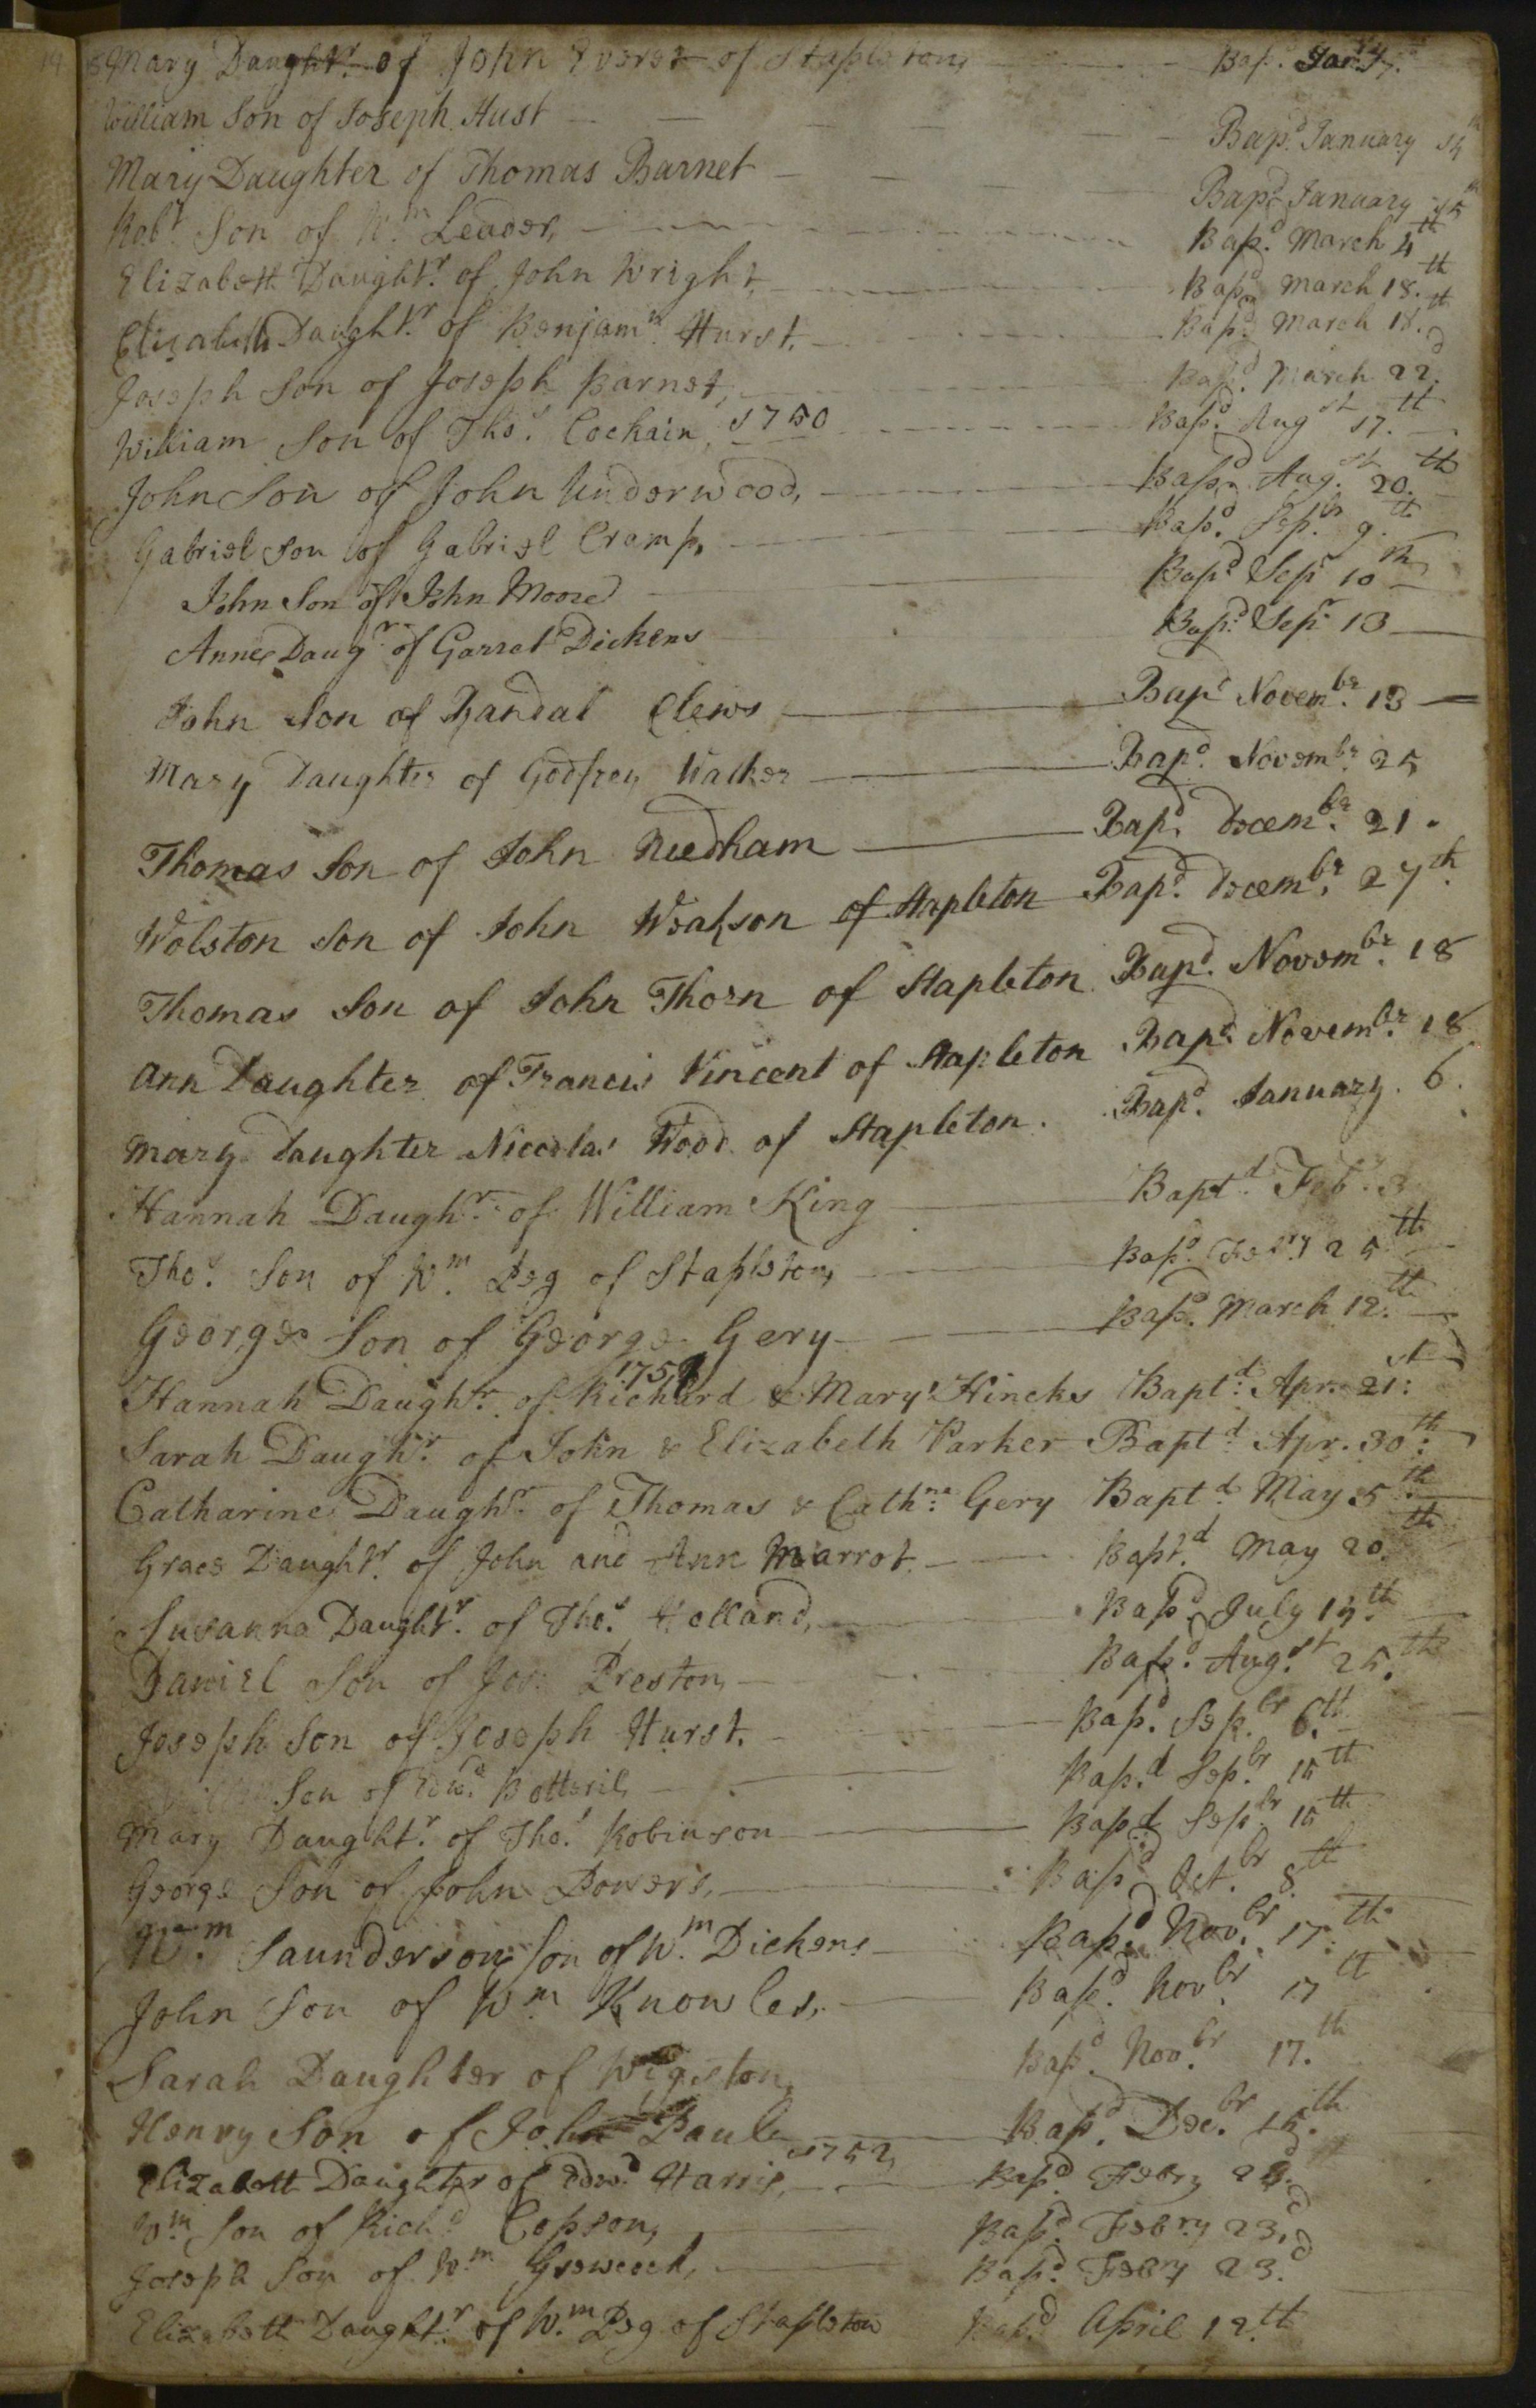 Mary Daught.r of John Everet of Stapleton, Bap.d Jan.
William Son of Joseph Hust Bap.d January
Mary Daughter of Thomas Barnet Bap.d January
Rob.t Son of W.m Leader, Bap.d March 4th
Elizabeth Daught.r of John Wright, Bap.d March 18.th
Elizabeth Daught.r of Benjam.n Hurst, Bap.d March 18.th
Joseph Son of Joseph Barnet, Bap.d March 22.d
William Son of Tho.s Cockain, 1750 Bap.d Aug.st 17.th
John Son of John Underwood, Bap.d Aug.st 20.th
Gabriel Son of Gabriel Cramp, Bap.d Sep.br 9.th
John Son of John Moore Bap.d Sepr 10th
Anne Daug.r of Garret Dickens Bap.d Sepr 13
John Son of Randal Clews Bap.d Novem.br 13
Mary Daughter of Godfrey Walker Bap.d Novem.br 25
Thomas Son of John Needham Bap.d Decem.br 21.
Wolston Son of John Weakson of Stapleton Bap.d Decem.br 27th.
Thomas Son of John Thorn of Stapleton Bap.d Novem.br 18
Ann Daughter of Francis Vincent of Stapleton Bap.d Novem.br 18
Mary Daughter Nicolas Wood of Stapleton. Bap.d January. 6.
Hannah Daugh.r of William King Bapt.d Feb.
Tho.s Son of W.m Peg of Stapleton, Bap.d Feb.ry 25th
George Son of George Gery Bap.d March 12.th
Hannah Daugh.r of Richard & Mary Hincks Bapt.d Apr. 21st
Sarah Daugh.r of John & Elizabeth Parker Bapt.d Apr. 30th
Catharine Daugh.r of Thomas & Cath.ne Gery Bapt.d May 5th
Grace Daught.r of John and Ann Marrot. Bapt.d May 20.th
Susanna Daught.r of Tho.s Holland, Bap.d July
Daniel Son of Jos. Preston, Bap.d Aug.st 25.th
Joseph Son of Joseph Hurst. Bap.d Sep.br 6.th
Son of Edw.d Botteril, Bap.d Sep.br 15th
Mary Daught.r of Tho.s Robinson Bap.d Sep.br 15th
George Son of John Powers, Bap.d Oct.br 8.th
W.m Saunderson, Son of W.m Dickens Bap.d Nov.br 17.th
John Son of W.m Knowles, Bap.d Nov.br 17th
Sarah Daughter of Wigston, Bap.d Nov.br 17.th
Henry Son of John Paul Bap.d Dec.br 15.th
1752,
Elizabeth Daughter of Edw.d Harris, Bap.d Febry
W.m Son of Rich.d Copson, Bap.d Feb.ry 23.d
Joseph Son of W.m Bap.d Feb.ry 23.d
Elizabeth Daught.r of W.m Peg of Stapleton Bap.d April 12.th